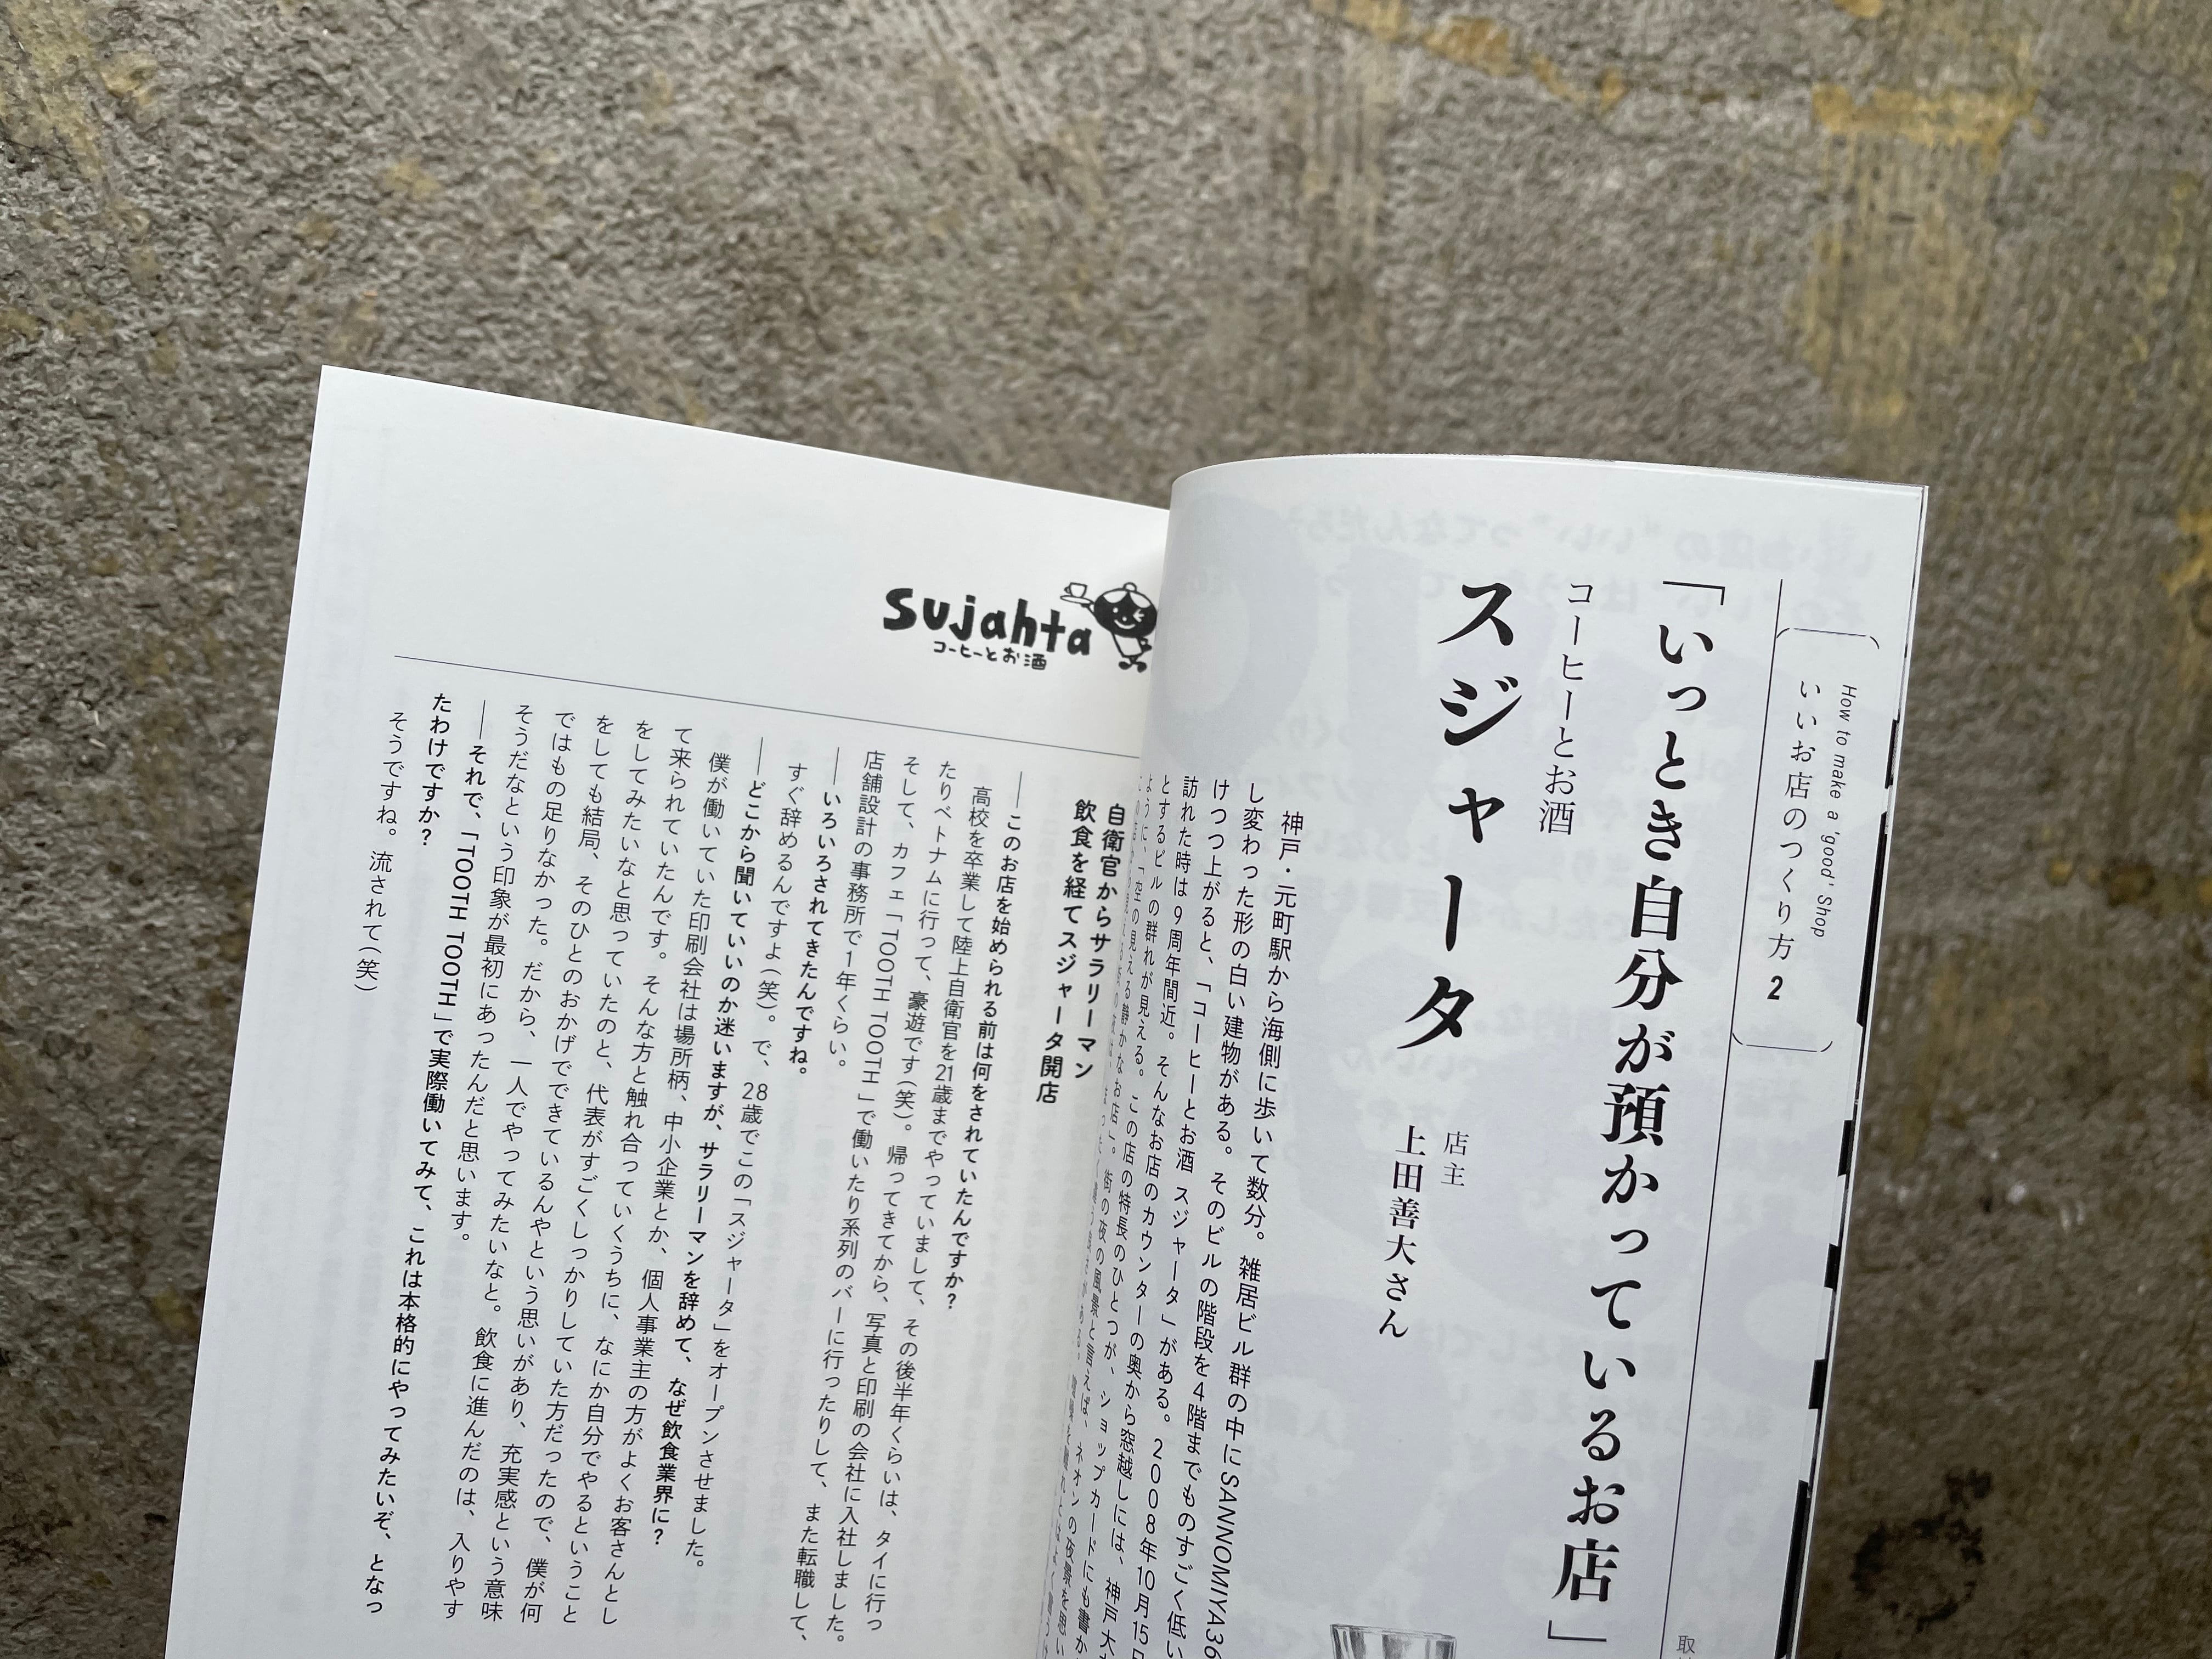 How to make a 'good' Shop
いいお店のつくり方 2
「いっとき自分が預かっているお店」
コーヒーとお酒
スジャータ
店主
上田善大さん
取
神戸・元町駅から海側に歩いて数分。雑居ビル群の中にSANNOMIYA36
し変わった形の白い建物がある。そのビルの階段を4階までものすごく低い
けつつ上がると、「コーヒーとお酒 スジャータ」がある。2008年10月15日
訪れた時は9周年間近。そんなお店のカウンターの奥から窓越しには、神戸大
とするビルの群れが見える。この店の特長のひとつが、ショップカードにも書か
ように、「空の見える静かなお店」。街の夜の風景と言えば、ネオンの夜景を思い
sujahta
コーヒーとお酒
自衛官からサラリーマン
飲食を経てスジャータ開店
――このお店を始められる前は何をされていたんですか?
高校を卒業して陸上自衛官を21歳までやっていまして、その後半年くらいは、タイに行っ
たりベトナムに行って、豪遊です(笑)。帰ってきてから、写真と印刷の会社に入社しました。
そして、カフェ「TOOTH TOOTH」で働いたり系列のバーに行ったりして、また転職して、
店舗設計の事務所で1年くらい。
――いろいろされてきたんですね。
すぐ辞めるんですよ(笑)。で、28歳でこの「スジャータ」をオープンさせました。
――どこから聞いていいのか迷いますが、サラリーマンを辞めて、なぜ飲食業界に?
僕が働いていた印刷会社は場所柄、中小企業とか、個人事業主の方がよくお客さんとし
て来られていたんです。そんな方と触れ合っていくうちに、なにか自分でやるということ
をしてみたいなと思っていたのと、代表がすごくしっかりしていた方だったので、僕が何
をしても結局、そのひとのおかげでできているんやという思いがあり、充実感という意味
ではもの足りなかった。だから、一人でやってみたいなと。飲食に進んだのは、入りやす
そうだなという印象が最初にあったんだと思います。
――それで、「TOOTH TOOTH」で実際働いてみて、これは本格的にやってみたいぞ、となっ
たわけですか?
そうですね。流されて(笑)